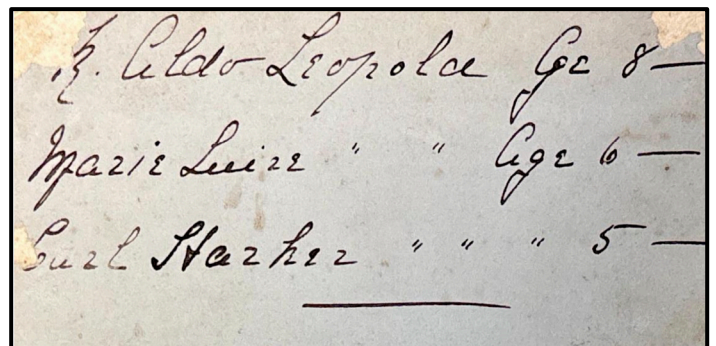 R. Aldo Leopold Age 8—
Marie Luize " " Age 6—
Carl Starker " " " 5—